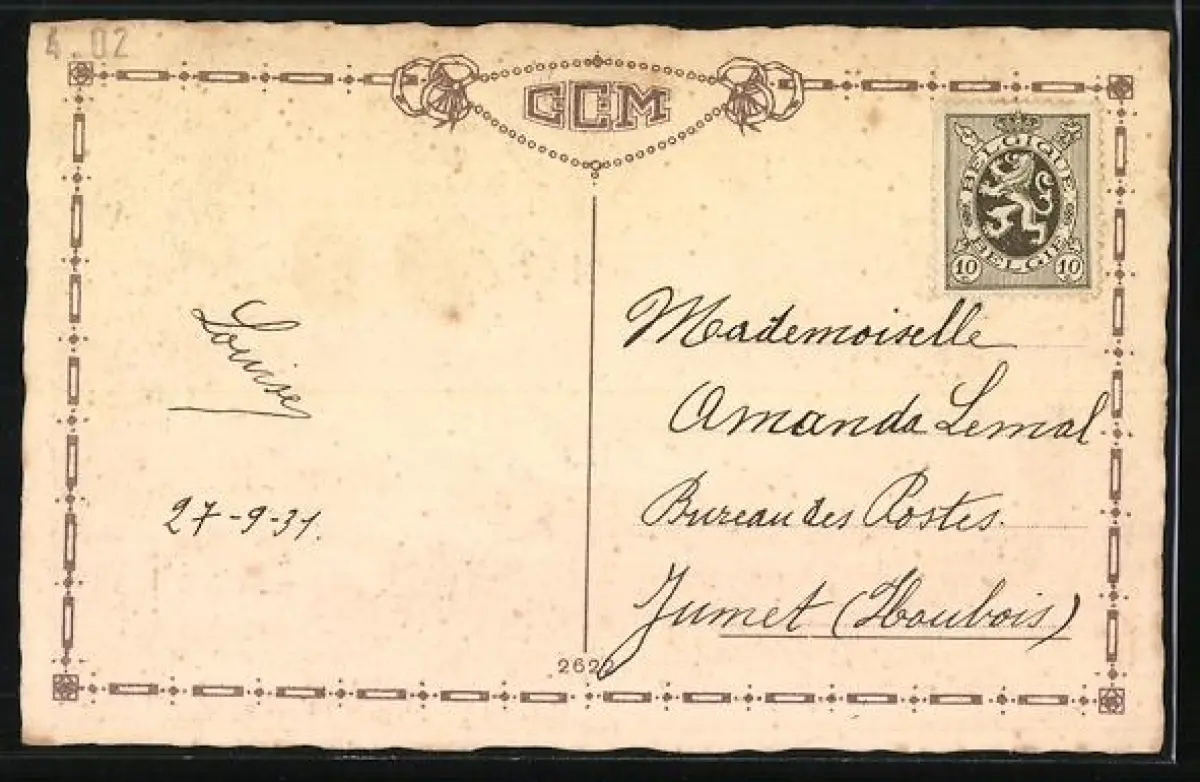 4.02
CCM
BELGIQUE
BELGIE
10 10
Louise
27-9-31.
Mademoiselle
Amanda Lemal
Bureau des Postes.
Jumet (Houbois)
2622